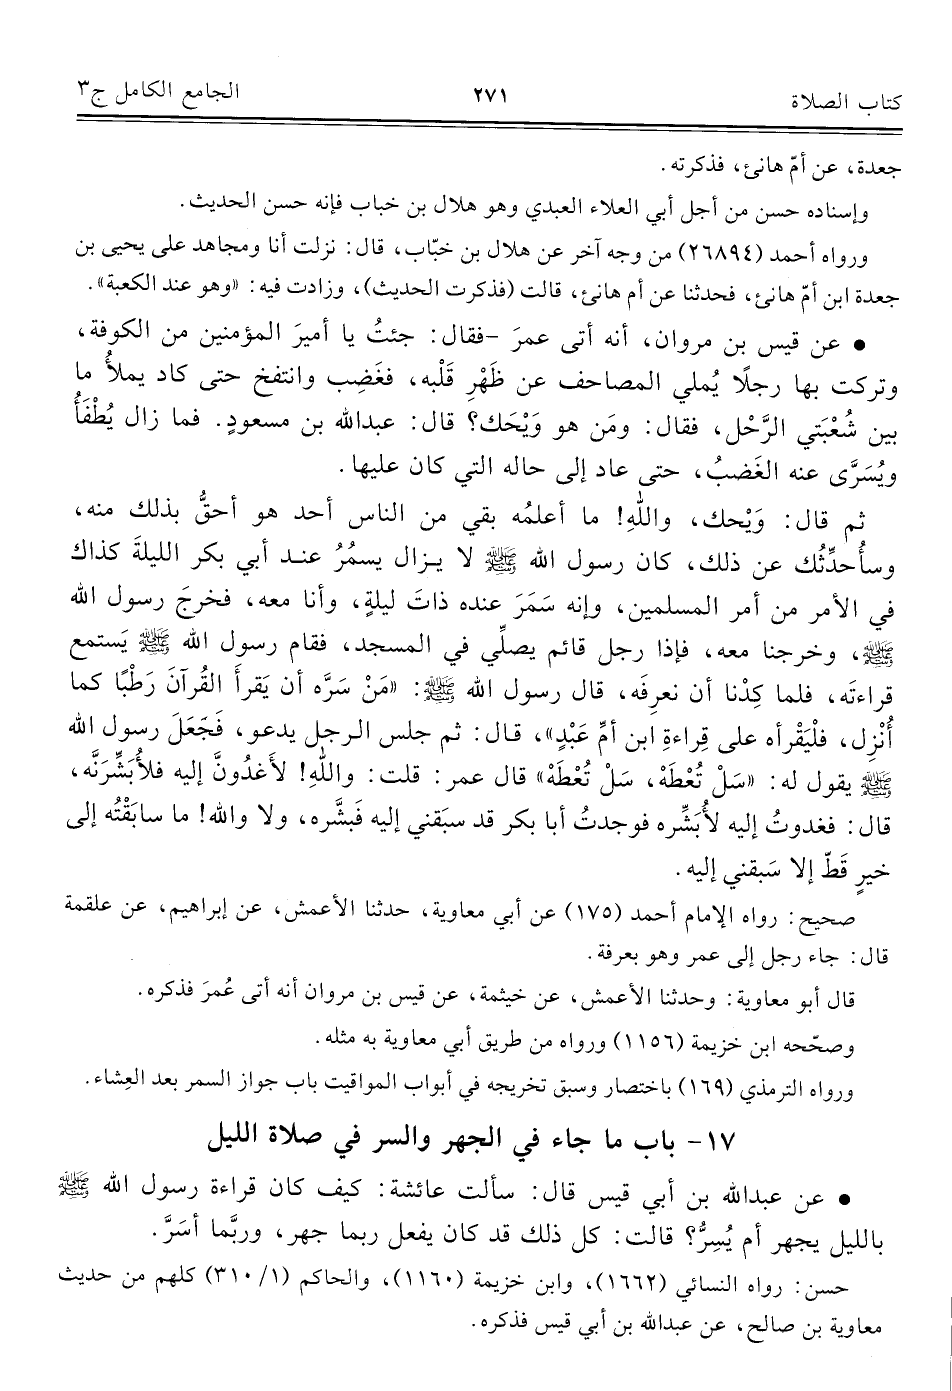 كتاب الصلاة ٢٧١ الجامع الكامل ج٣
جعدة، عن أمّ هانئ، فذكرته.
وإسناده حسن من أجل أبي العلاء العبدي وهو هلال بن خباب فإنه حسن الحديث.
ورواه أحمد (٢٦٨٩٤) من وجه آخر عن هلال بن خبّاب، قال: نزلت أنا ومجاهد على يحيى بن
جعدة ابن أمّ هانئ، فحدثنا عن أم هانئ، قالت (فذكرت الحديث)، وزادت فيه: «وهو عند الكعبة».
• عن قيس بن مروان، أنه أتى عمرَ -فقال: جئتُ يا أميرَ المؤمنين من الكوفة،
وتركت بها رجلًا يُملي المصاحف عن ظَهْرِ قَلْبه، فغَضِب وانتفخ حتى كاد يملأُ ما
بين شُعْبَتي الرَّحْل، فقال: ومَن هو وَيْحَك؟ قال: عبدالله بن مسعودٍ. فما زال يُطْفَأُ
ويُسَرَّى عنه الغَضبُ، حتى عاد إلى حاله التي كان عليها.
ثم قال: وَيْحك، واللهِ! ما أعلمُه بقي من الناس أحد هو أحقُّ بذلك منه،
وسأُحدِّثُك عن ذلك، كان رسول الله ﷺ لا يزال يسمُرُ عند أبي بكر الليلةَ كذاك
في الأمر من أمر المسلمين، وإنه سَمَرَ عنده ذاتَ ليلةٍ، وأنا معه، فخرجَ رسول الله
ﷺ، وخرجنا معه، فإذا رجل قائم يصلِّي في المسجد، فقام رسول الله ﷺ يَستمع
قراءتَه، فلما كِدْنا أن نعرِفَه، قال رسول الله ﷺ: «مَنْ سَرَّه أن يَقرأَ القُرآنَ رَطْبًا كما
أُنْزِل، فلْيَقْرأه على قِراءةِ ابن أمِّ عَبْدٍ»، قال: ثم جلس الرجل يدعو، فَجَعَلَ رسول الله
ﷺ يقول له: «سَلْ تُعْطَهْ، سَلْ تُعْطَهْ» قال عمر: قلت: واللهِ! لأَغدُونَّ إليه فلأُبَشِّرَنَّه،
قال: فغدوتُ إليه لأُبَشِّره فوجدتُ أبا بكر قد سبَقني إليه فَبشَّره، ولا والله! ما سابَقْتُه إلى
خيرٍ قَطّ إلا سَبقني إليه.
صحيح: رواه الإمام أحمد (١٧٥) عن أبي معاوية، حدثنا الأعمش، عن إبراهيم، عن علقمة
قال: جاء رجل إلى عمر وهو بعرفة.
قال أبو معاوية: وحدثنا الأعمش، عن خيثمة، عن قيس بن مروان أنه أتى عُمرَ فذكره.
وصحّحه ابن خزيمة (١١٥٦) ورواه من طريق أبي معاوية به مثله.
ورواه الترمذي (١٦٩) باختصار وسبق تخريجه في أبواب المواقيت باب جواز السمر بعد العِشاء.
١٧- باب ما جاء في الجهر والسر في صلاة الليل
• عن عبدالله بن أبي قيس قال: سألت عائشة: كيف كان قراءة رسول الله ﷺ
بالليل يجهر أم يُسِرُّ؟ قالت: كل ذلك قد كان يفعل ربما جهر، وربَّما أسَرَّ.
حسن: رواه النسائي (١٦٦٢)، وابن خزيمة (١١٦٠)، والحاكم (٣١٠/١) كلهم من حديث
معاوية بن صالح، عن عبدالله بن أبي قيس فذكره.